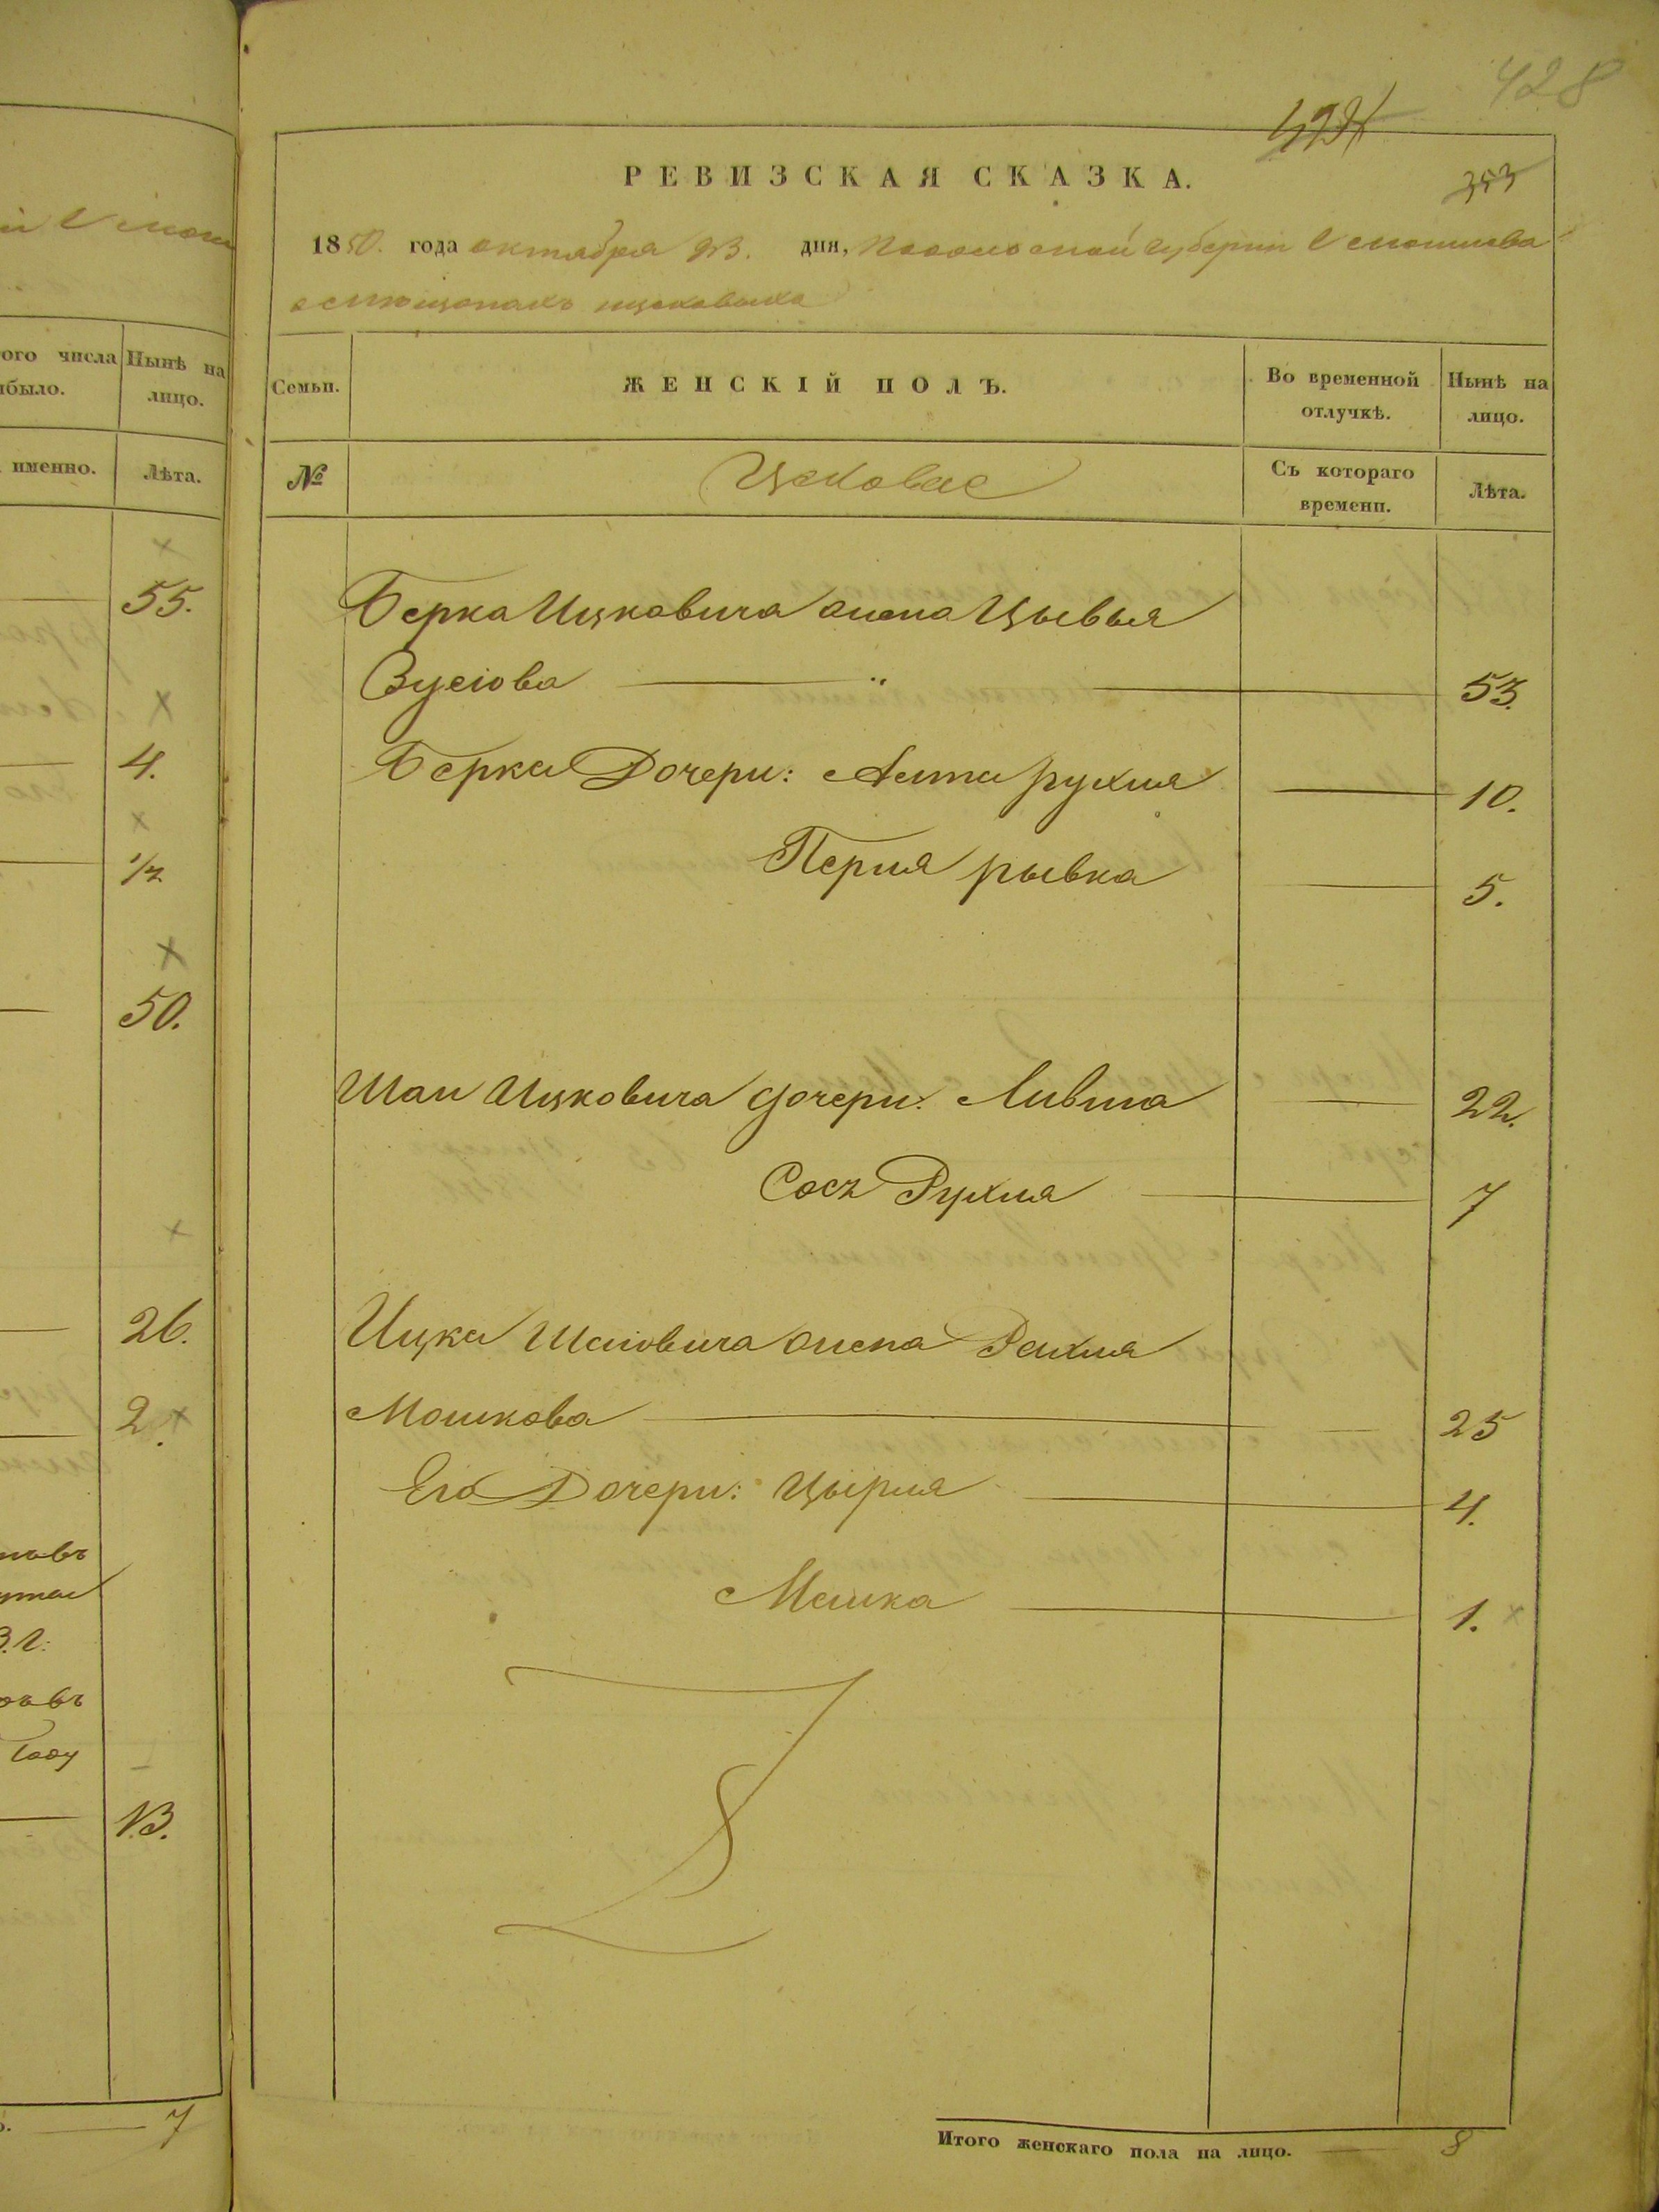 428
353
РЕВИЗСКАЯ СКАЗКА.
1850. года октября 23. дня, Подольской губерніи
о мѣщанахъ
Семьи.
ЖЕНСКІЙ ПОЛЪ.
Во временной отлучкѣ.
Нынѣ на лицо.
№
Съ котораго времени.
Лѣта.
Берка Ицковича жена Цывья
Зусіова 53.
Берка Дочери: Рухля 10.
Перля рывка 5.
Шаи Ицковича дочери: Ливша 22.
Сося Рухля 7
Ицка Шаіовича жена Рахля
Мошкова 25
Его Дочери: Цырля 4.
Машка 1.
Итого женскаго пола на лицо. 8
ого числа
было.
Нынѣ на лицо.
именно.
Лѣта.
55.
4.
1/2
50.
26.
2.
году
13.
7